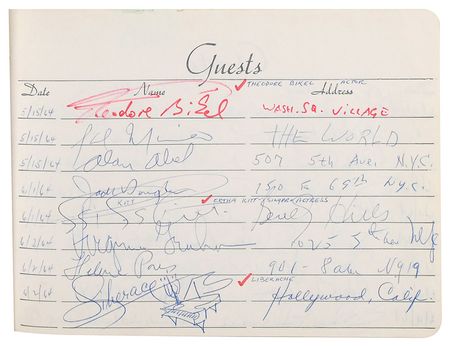 Guests
THEODORE BIKEL ACTOR
Date Name Address
5/15/64 Theodore Bikel WASH. SQ. VILLAGE
5/15/64 THE WORLD
5/15/64 Alan Abel 507 5th Ave. N.Y.C.
6/1/64 150 E 69th N.Y.C.
KITT EARTHA KITT SINGER/ACTRESS
6/1/64 Beverly Hills
6/2/64 Virginia Graham 1025 5th Ave
6/2/64 901-8 Ave NY 19
LIBERACHE
6/2/64 Liberace Hollywood, Calif.